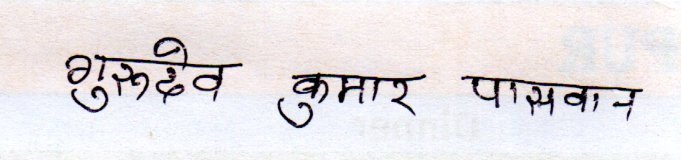 गुरूदेव कुमार पासवान